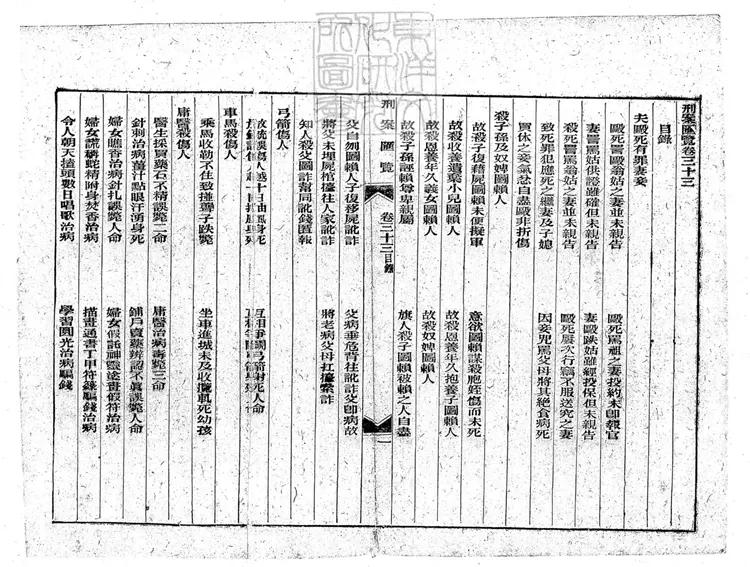 刑案匯覽卷三十三
目錄
夫毆死有罪妻妾
毆死詈毆翁姑之妻並未親告
毆死罵祖之妻投約未即報官
妻詈罵姑供證雖確但未親告
妻毆跌姑雖經投保但未親告
殺死詈罵翁姑之妻並未親告
毆死屢次行竊不服送究之妻
致死罪犯應死之繼妻及子媳
因妾兇罵父母將其絕食病死
買休之妾氣忿自盡毆非折傷
殺子孫及奴婢圖賴人
故殺子復藉屍圖賴未便擬軍
意欲圖賴謀殺胞姪傷而未死
故殺收養遺棄小兒圖賴人
故殺恩養年久抱養子圖賴人
故殺恩養年久義女圖賴人
故殺奴婢圖賴人
故殺子孫誣賴尊卑親屬
旗人殺子圖賴被賴之人自盡
刑案匯覽
卷三十三目錄
一
父自刎圖賴人子復移屍訛詐
父病垂危背往訛詐父即病故
將父未埋屍棺擡往人家訛詐
將老病父母扛擡索詐
知人殺父圖詐幫同訛錢匿報
弓箭傷人
車馬殺傷人
乘馬收勒不住致撞聾子跌斃
坐車進城未及收攬軋死幼孩
庸醫殺傷人
醫生採買藥石不精誤斃二命
庸醫治病毒斃三命
針刺治病薑汁點眼汗湧身死
鋪戶賣藥辨認不真誤斃人命
婦女瞧香治病針扎誤斃人命
婦女假託神靈塗畫假符治病
婦女謊稱蛇精附身焚香治病
描畫通書丁甲符籙騙錢治病
令人朝天磕頭數日唱歌治病
學習圓光治病騙錢